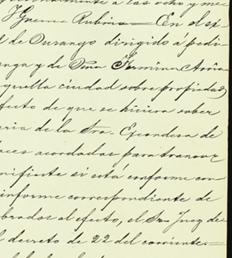 a las ocho y me
Guerra Rubina — En el es
l de Durango dirigido á pedi
nza y de Dña Fermina Arria
quella ciudad sobre propiedad
fecto de que se hiciera saber
eria de la Sra. Escandera de
ces acordadas para transar
nifieste si está conforme con
informe correspondiente de
brados al efecto, el Sr Juez de
l decreto de 22 del corriente.—